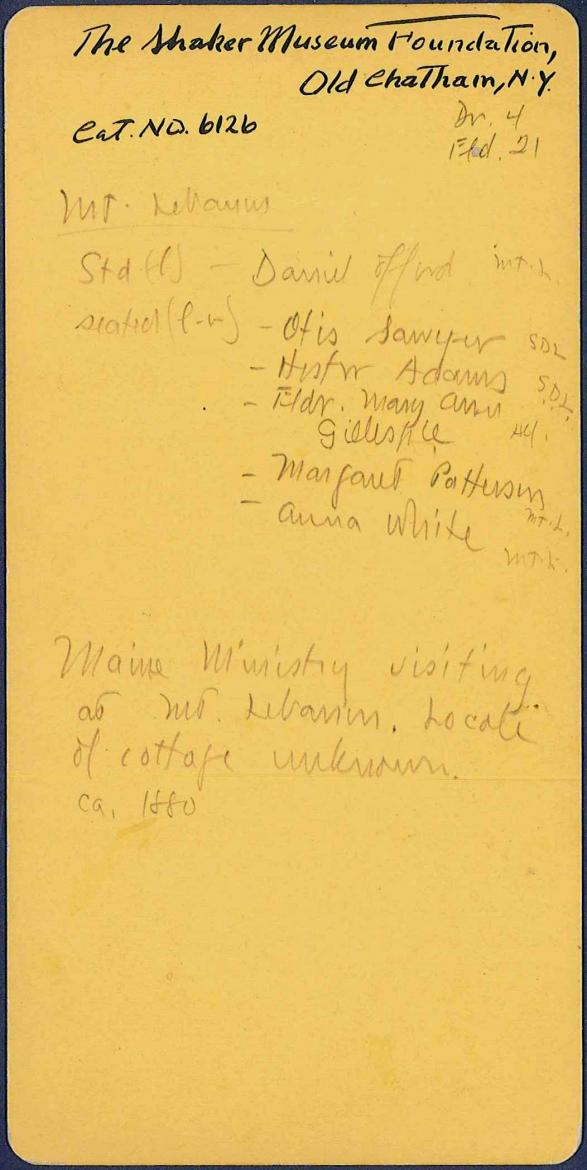 The Shaker Museum Foundation,
Old Chatham, N.Y.
Cat. No. 6126
Dr. 4
Fld. 21
Mt. Lebanon
Std (l) - Daniel Offord Mt. L.
seated (l-r) - Otis Sawyer SDL
- Hester Adams S.D.L.
- Eldr. Mary Ann
Gillespie Alf.
- Margaret Patterson
Mt. L.
- Anna White
Mt. L.
Maine Ministry visiting
at Mt. Lebanon. Locale
of cottage unknown.
ca. 1880